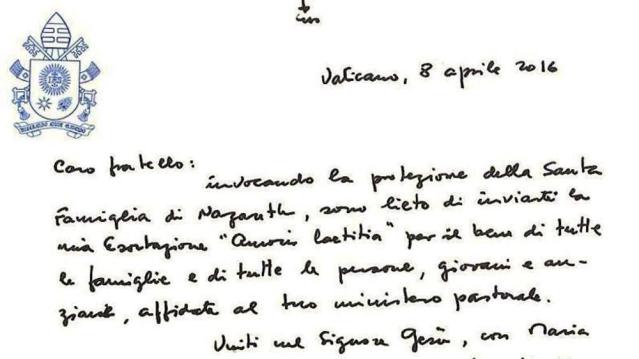 Vaticano, 8 aprile 2016
MISERANDO ATQUE ELIGENDO
Caro fratello:
invocando la protezione della Santa
Famiglia di Nazareth, sono lieto di inviarti la
mia Esortazione "Amoris laetitia" per il bene di tutte
le famiglie e di tutte le persone, giovani e an-
ziane, affidate al tuo ministero pastorale.
Uniti nel Signore Gesù, con Maria